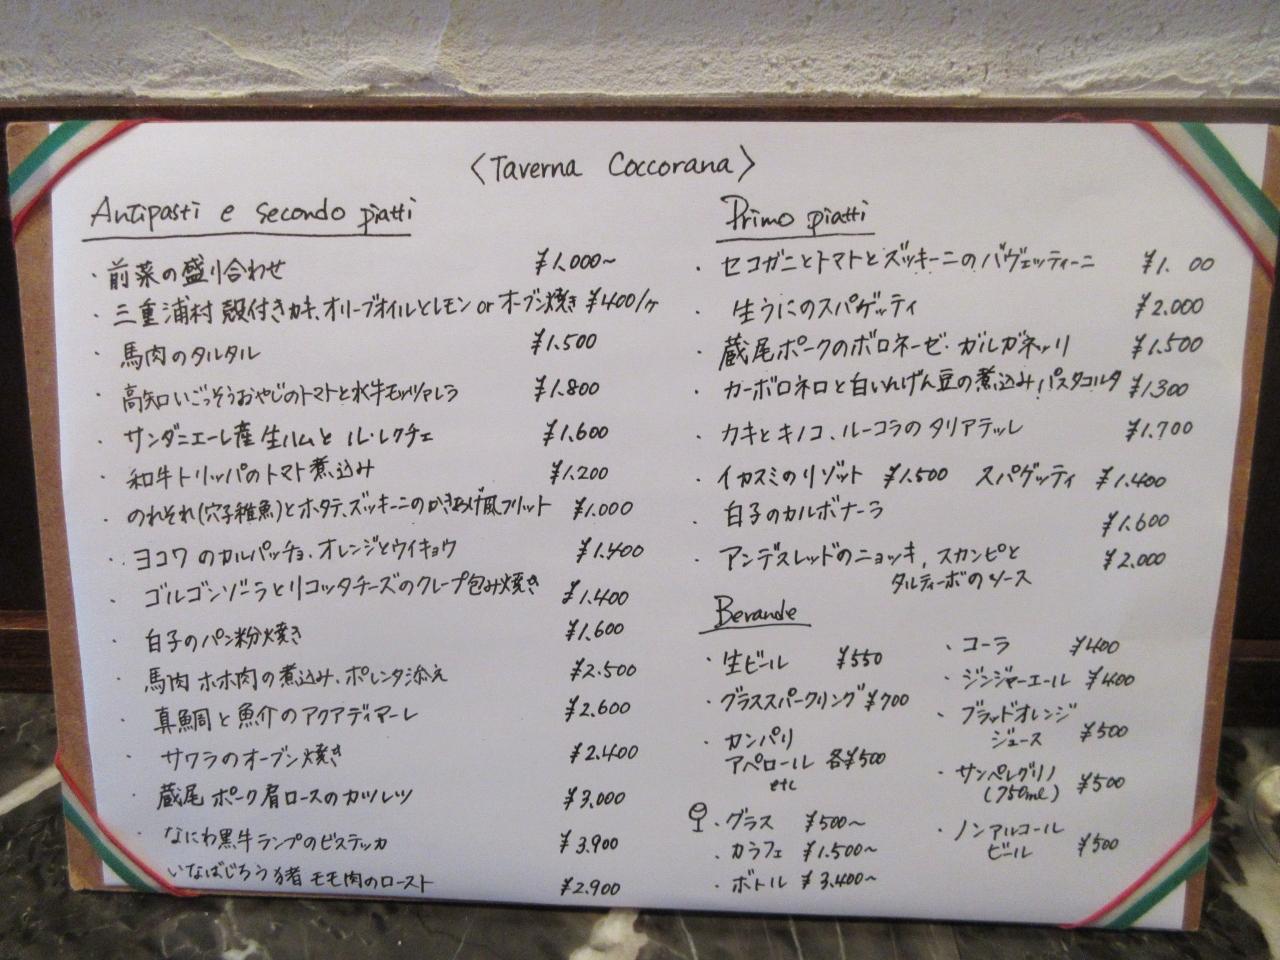 〈Taverna Coccorana〉
Antipasti e secondo piatti
・前菜の盛り合わせ ¥1.000~
・三重浦村 殻付きカキ、オリーブオイルとレモン or オーブン焼き ¥400/ヶ
・馬肉のタルタル ¥1.500
・高知いごっそうおやじのトマトと水牛モッツァレラ ¥1.800
・サンダニエーレ産 生ハムと ル・レクチェ ¥1.600
・和牛トリッパのトマト煮込み ¥1.200
・のれそれ(穴子稚魚)とホタテ、ズッキーニのかきあげ風フリット ¥1.000
・ヨコワのカルパッチョ、オレンジとウイキョウ ¥1.400
・ゴルゴンゾーラとリコッタチーズのクレープ包み焼き ¥1.400
・白子のパン粉焼き ¥1.600
・馬肉 ホホ肉の煮込み、ポレンタ添え ¥2.500
・真鯛と魚介のアクアディマーレ ¥2.600
・サワラのオーブン焼き ¥2.400
・蔵尾 ポーク肩ロースのカツレツ ¥3.000
・なにわ黒牛ランプのビステッカ ¥3.900
・いなばじろう 猪 モモ肉のロースト ¥2.900
Primo piatti
・セコガニとトマトとズッキーニのバヴェッティーニ ¥1. 00
・生うにのスパゲッティ ¥2.000
・蔵尾ポークのボロネーゼ・ガルガネッリ ¥1.500
・カーボロネロと白いんげん豆の煮込み パスタコルタ ¥1.300
・カキとキノコ、ルーコラのタリアテッレ ¥1.700
・イカスミのリゾット ¥1.500 スパゲッティ ¥1.400
・白子のカルボナーラ ¥1.600
・アンデスレッドのニョッキ、スカンピと ¥2.000
タルティーボのソース
Bevande
・生ビール ¥550
・グラススパークリング ¥700
・カンパリ
アペロール 各¥500
etc
・グラス ¥500~
・カラフェ ¥1.500~
・ボトル ¥3.400~
・コーラ ¥400
・ジンジャーエール ¥400
・ブラッドオレンジ
ジュース ¥500
・サンペレグリノ
(750ml) ¥500
・ノンアルコール
ビール ¥500